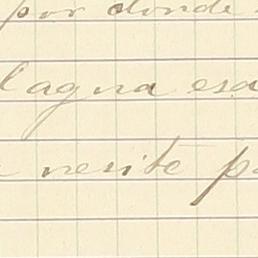 por donde
lagua esa
nesite pa